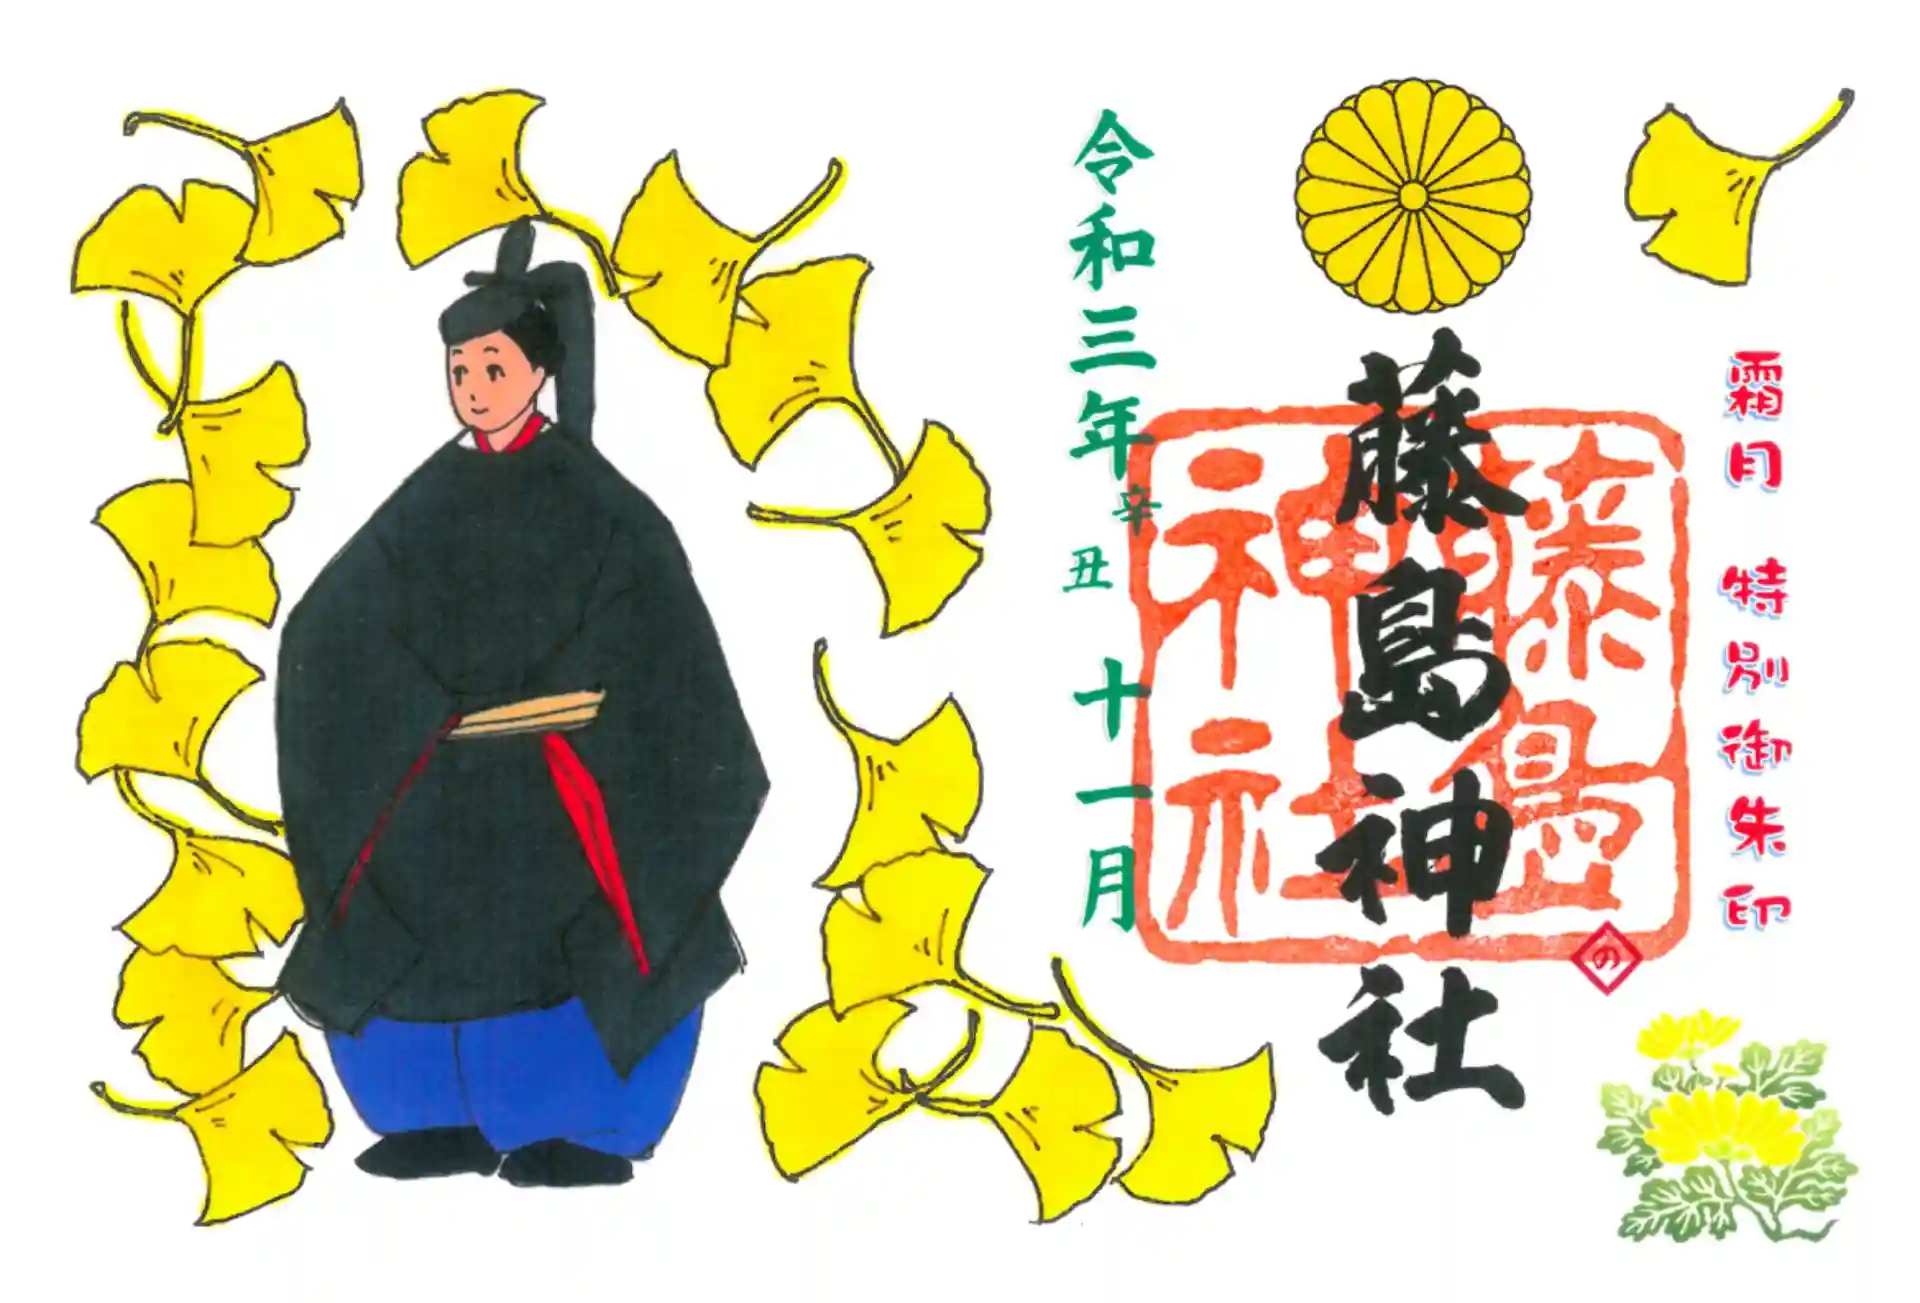 霜月 特別御朱印
藤島神社
藤島神社
の
令和三年辛丑 十一月